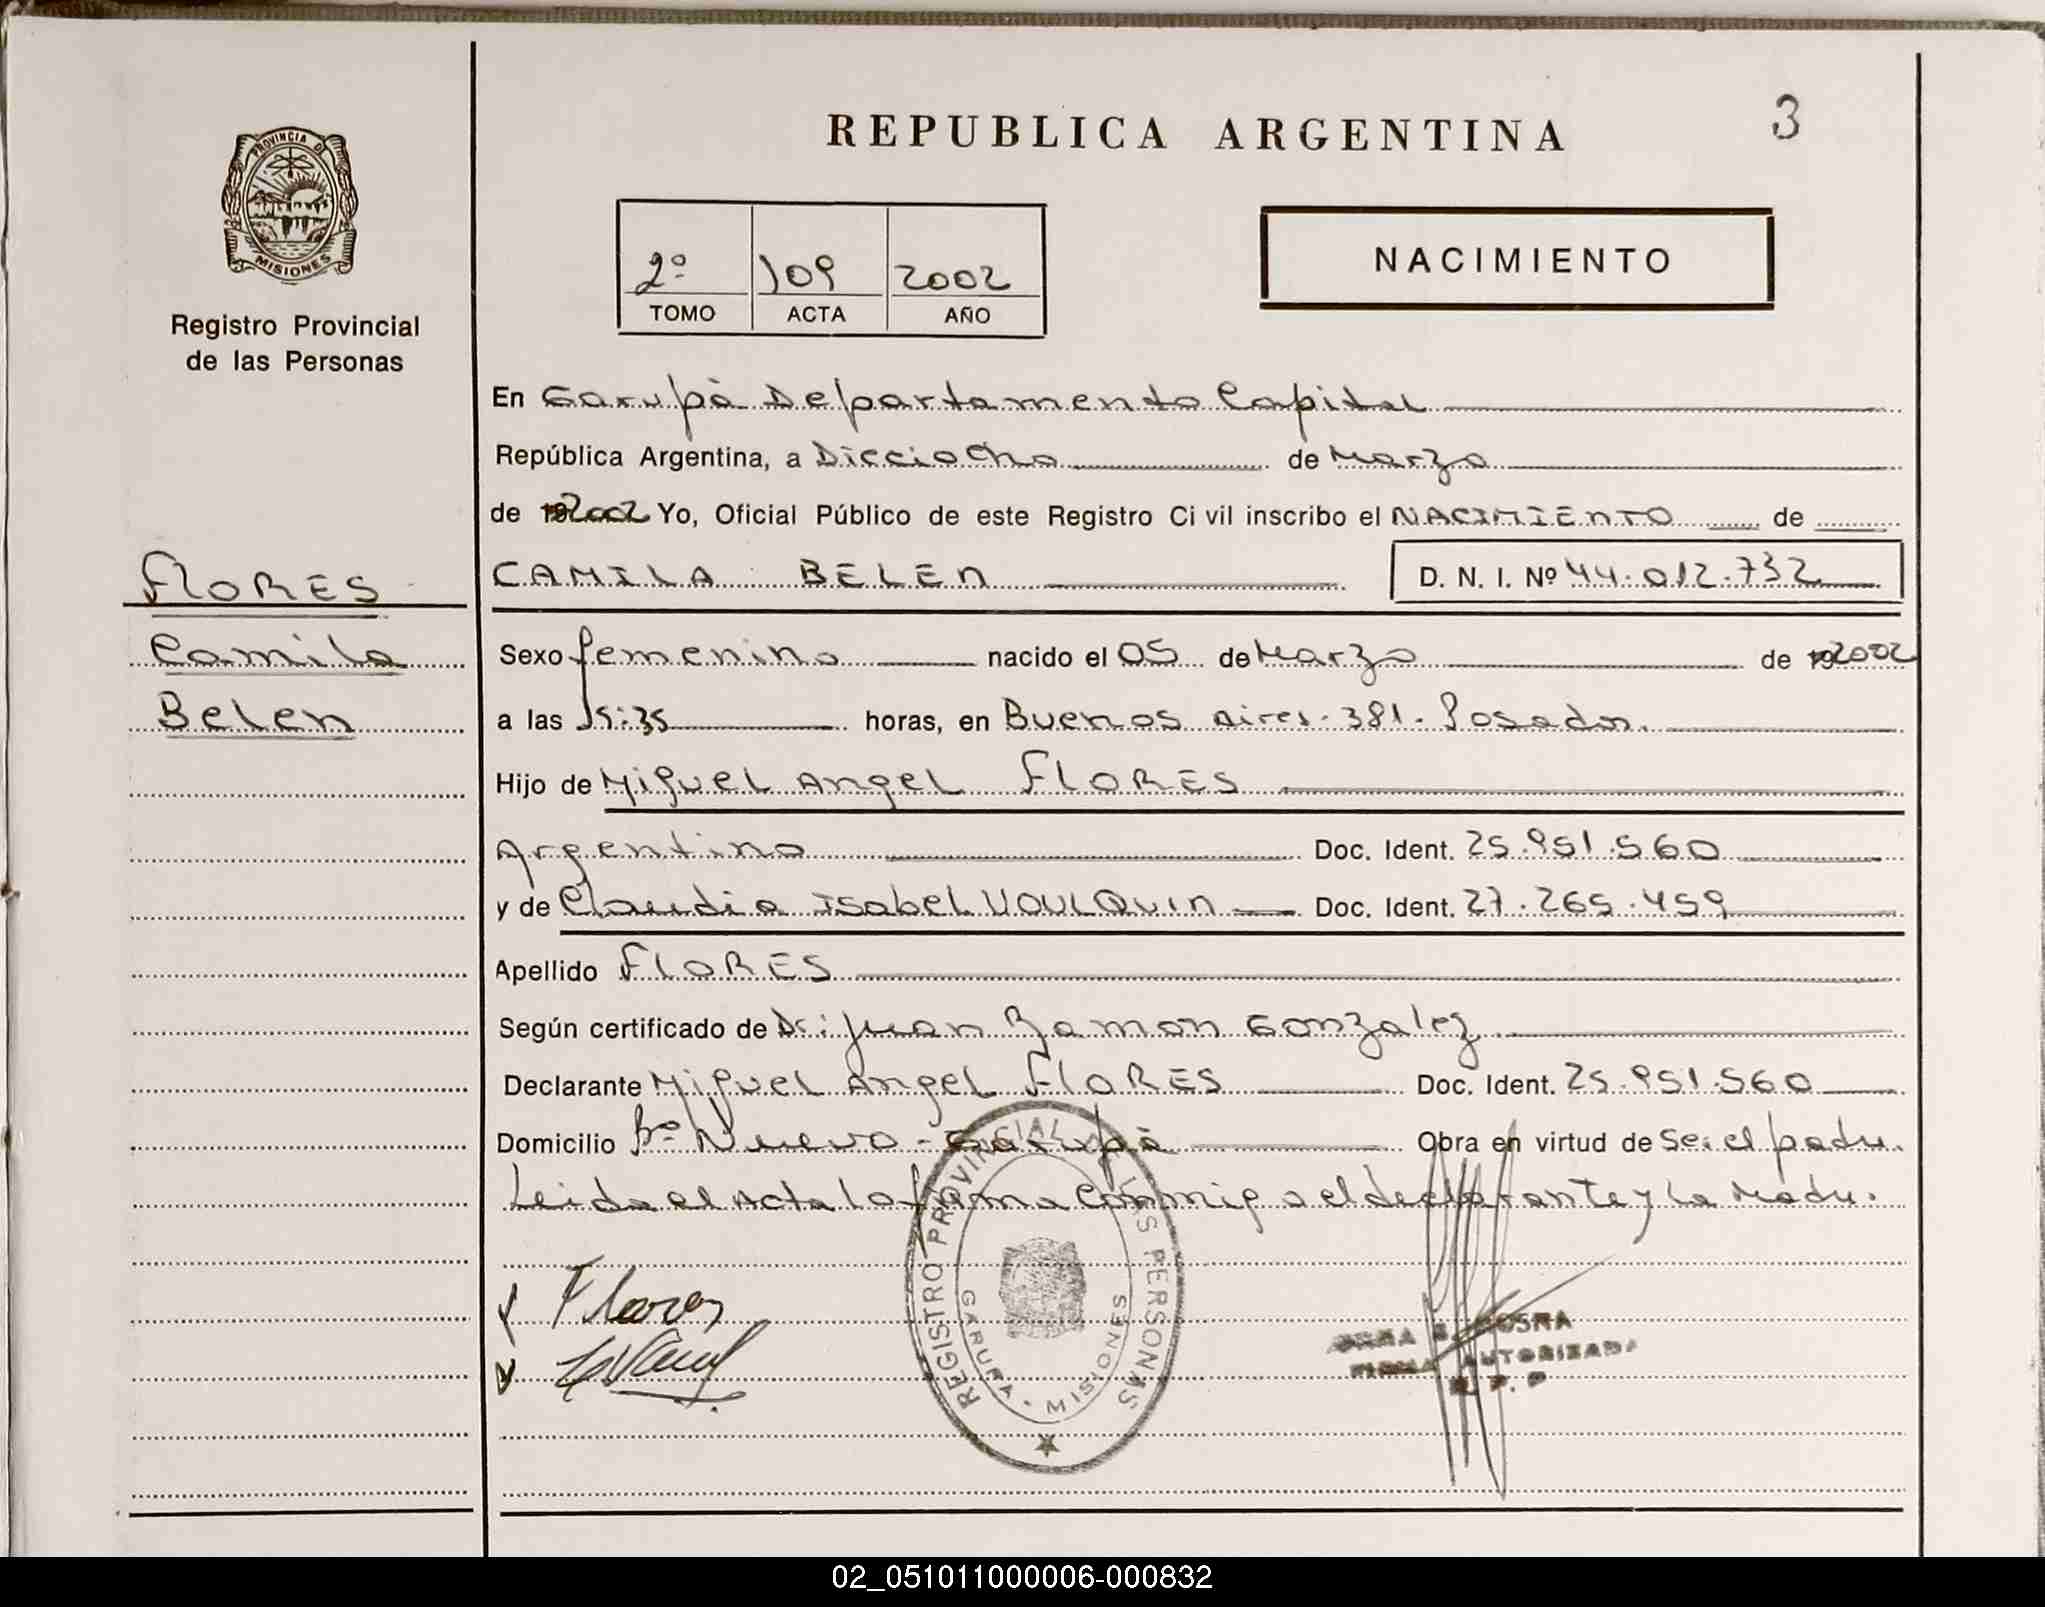 REPUBLICA ARGENTINA
3
PROVINCIA DE
MISIONES
Registro Provincial
de las Personas
2º 109 2002
TOMO ACTA AÑO
NACIMIENTO
En Garupà Departamento Capital
República Argentina, a Dieciocho de Marzo
de 192002 Yo, Oficial Público de este Registro Civil inscribo el NACIMIENTO de
CAMILA BELEN D. N. I. Nº 44.012.732
FLORES
Camila
Belen
Sexo femenino nacido el 05 de Marzo de 192002
a las 15:35 horas, en Buenos Aires 381. Posadas.
Hijo de Miguel Angel FLORES
Argentino Doc. Ident. 25.951.560
y de Claudia Isabel VOULQUIN Doc. Ident. 27.265.459
Apellido FLORES
Según certificado de Dr: Juan Ramon Gonzalez
Declarante Miguel Angel FLORES Doc. Ident. 25.951.560
Domicilio Bº Nuevo - Garupà Obra en virtud de Ser el padre.
Leida el Acta la firma conmigo el declarante y la Madre.
Flores
REGISTRO PROVINCIAL DE LAS PERSONAS
GARUPA - MISIONES
FIRMA AUTORIZADA
R. P. P
02_051011000006-000832